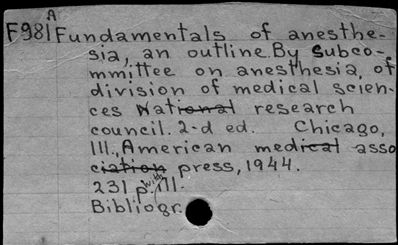 A
F981 Fundamentals of anesthe-
sia, an outline. By Subco-
mmittee on anesthesia, of
division of medical scien-
ces National research
council. 2-d ed. Chicago,
Ill., American medical asso
ciation press, 1944.
231 p. with ill.
Bibliogr.